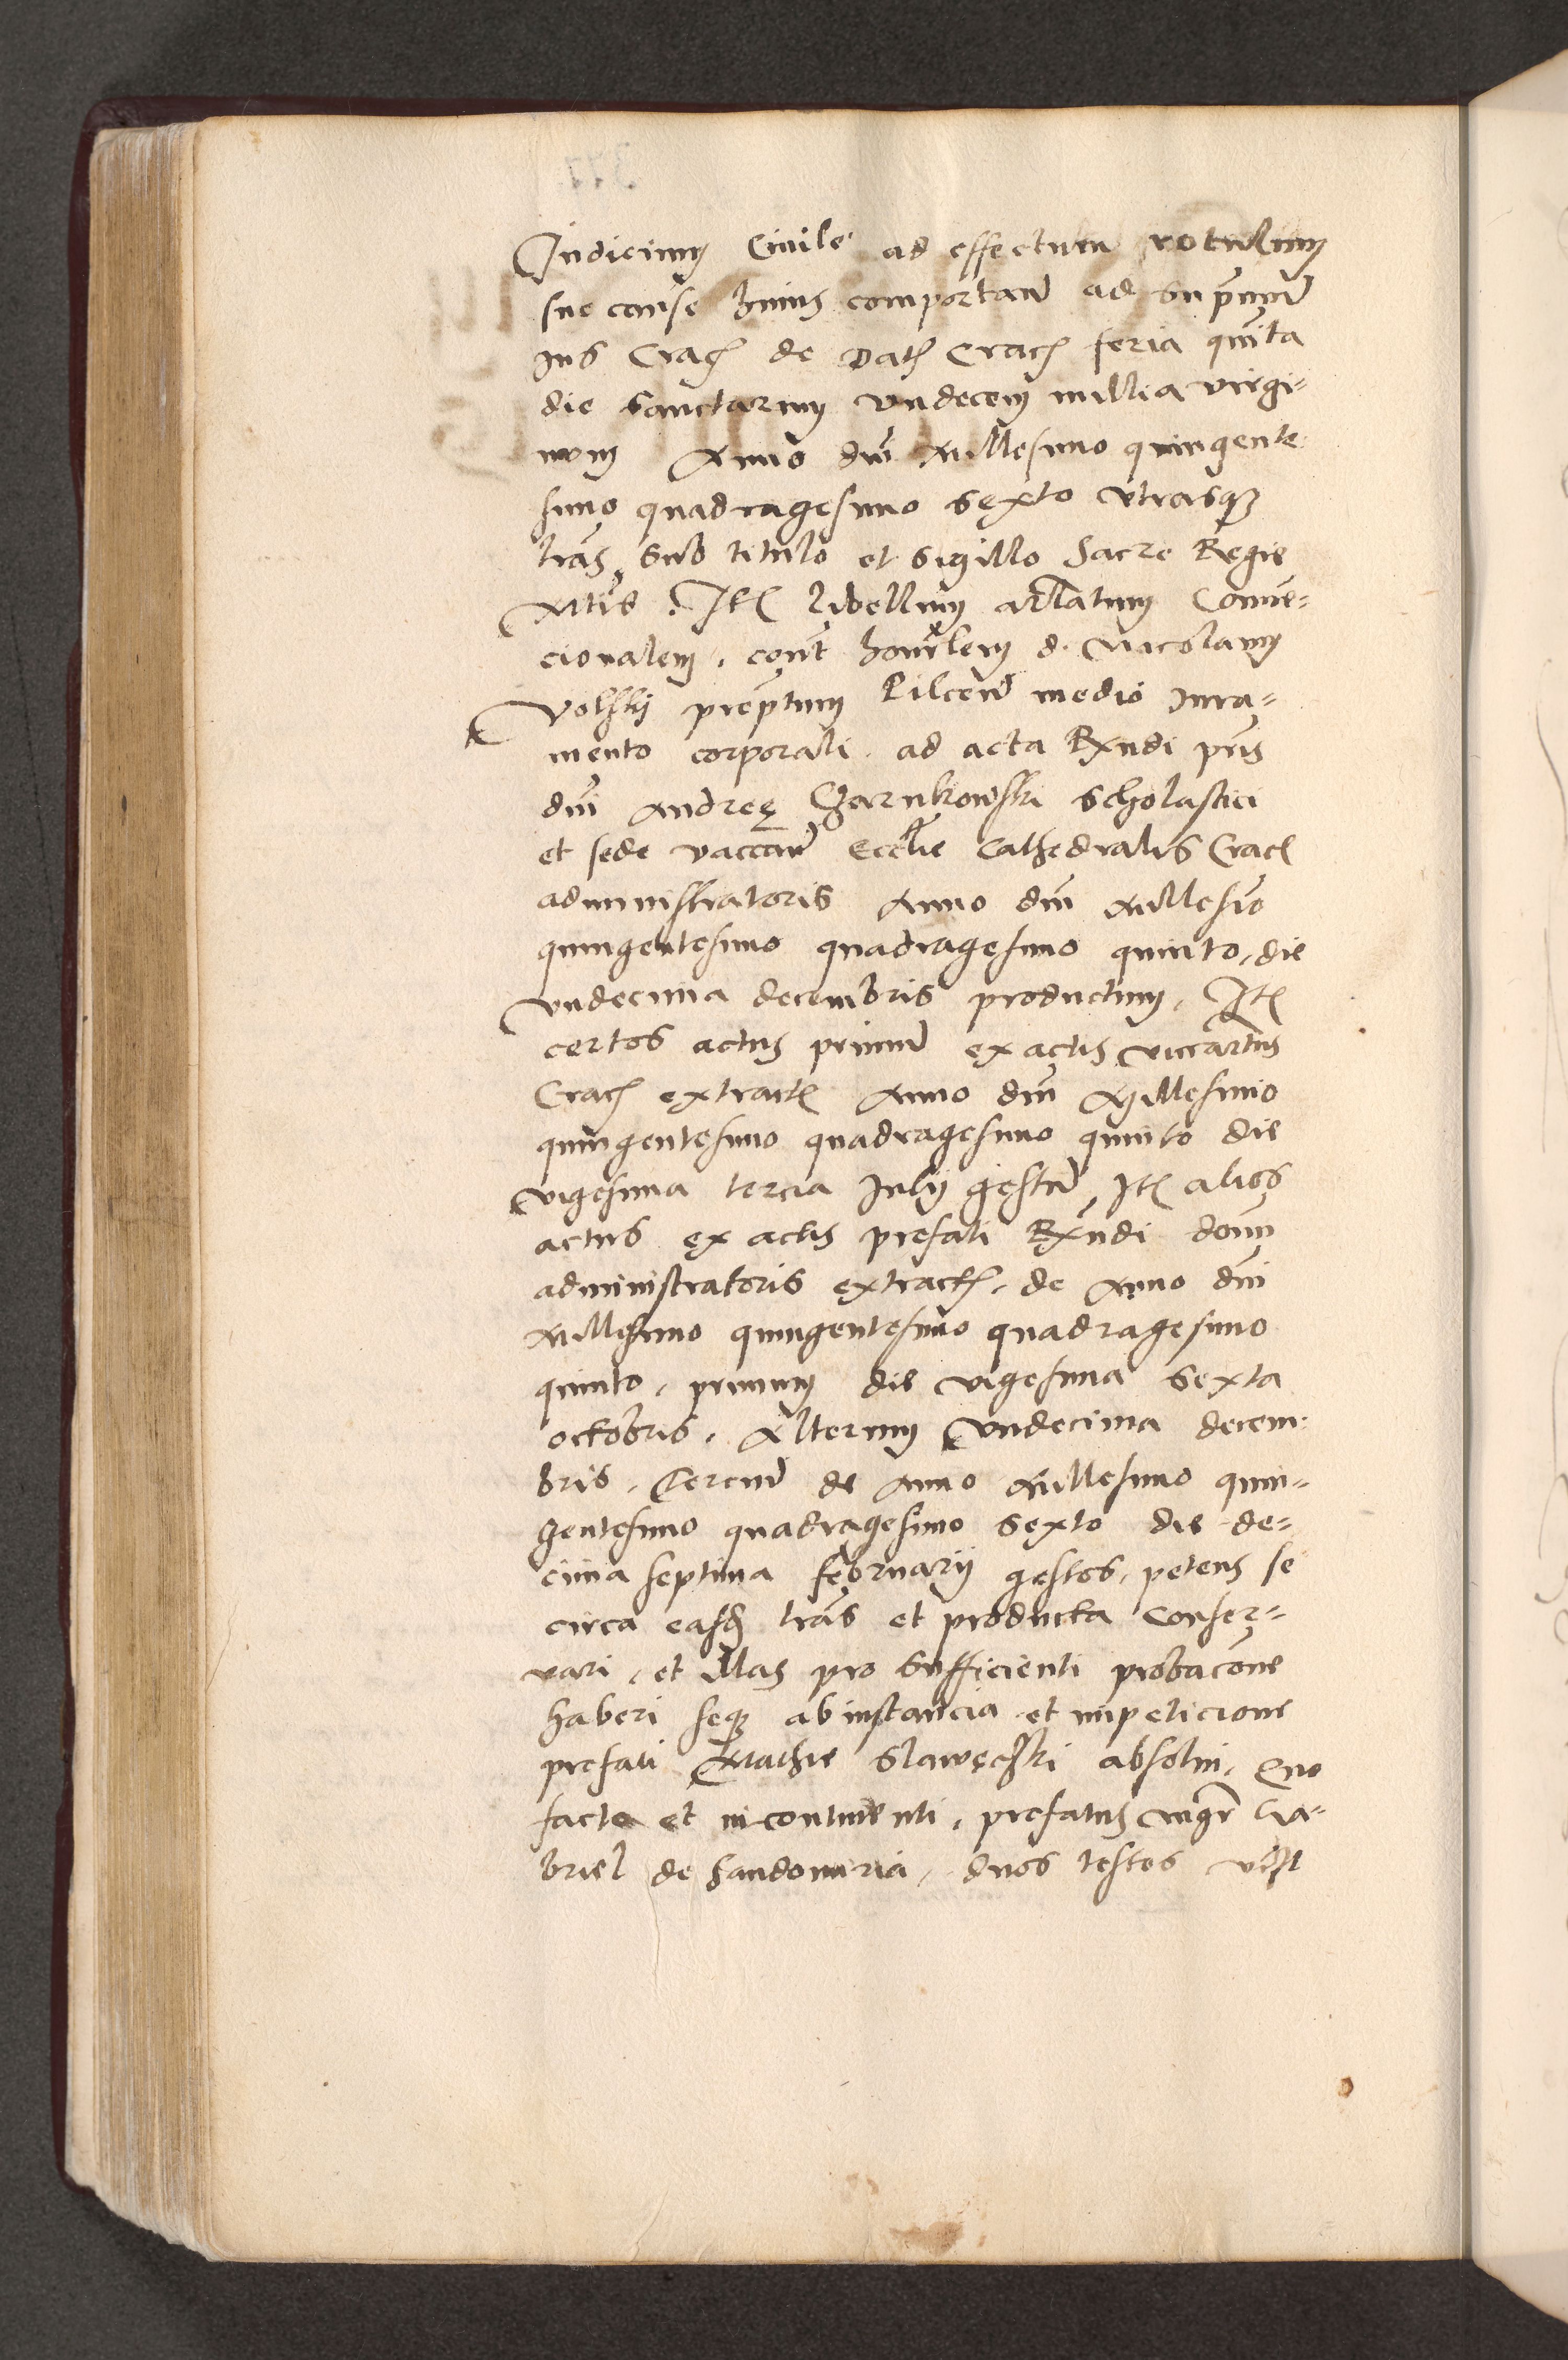 Judicium Civile ad effectum rotulum
sue cause huius comportand ad supremum
ius Crac de Dat Crac feria quinta
die sanctarum undecem millia virgi-
num Anno dni Millesimo quingente
simo quadragesimo sexto utrasque
lras sub titulo et sigillo Sacre Regie
Mtis. Itē libellum arlatum Conven-
cionalem, cont honrlem d. Nicolaum
Volski preptum Pilcen medio Jura-
mento corporali ad acta Rxndi pris
dni Andree Czarnkowski Scholastici
et sede vaccan Ecclie Cathedralis Crac
administratoris Anno dni Millesimo
quingentesimo quadragesimo quinto, die
undecima decembris productum, Itē
certos actus primum ex actis vicariatus
Crac extractū Anno dni Millesimo
quingentesimo quadragesimo quinto die
vigesima tercia Julij gestum, Itē alios
actus ex actis prefati Rxndi domni
administratoris extractos, de Anno dni
Millesimo quingentesimo quadragesimo
quinto, primum die vigesima sexta
octobris, Alterum Undecima decem-
bris, Tercium de Anno Millesimo quin-
gentesimo quadragesimo sexto die de-
cima septima februarij gestos, petens se
circa easdem lras et producta conser-
vari, et illas pro sufficienti probacōne
haberi seque ab instancia et impeticione
prefati Mathie Slaweczki absolvi, Quo
facto et incontinenti, prefatus mgr Ga-
briel de Sandomiria, duos testes